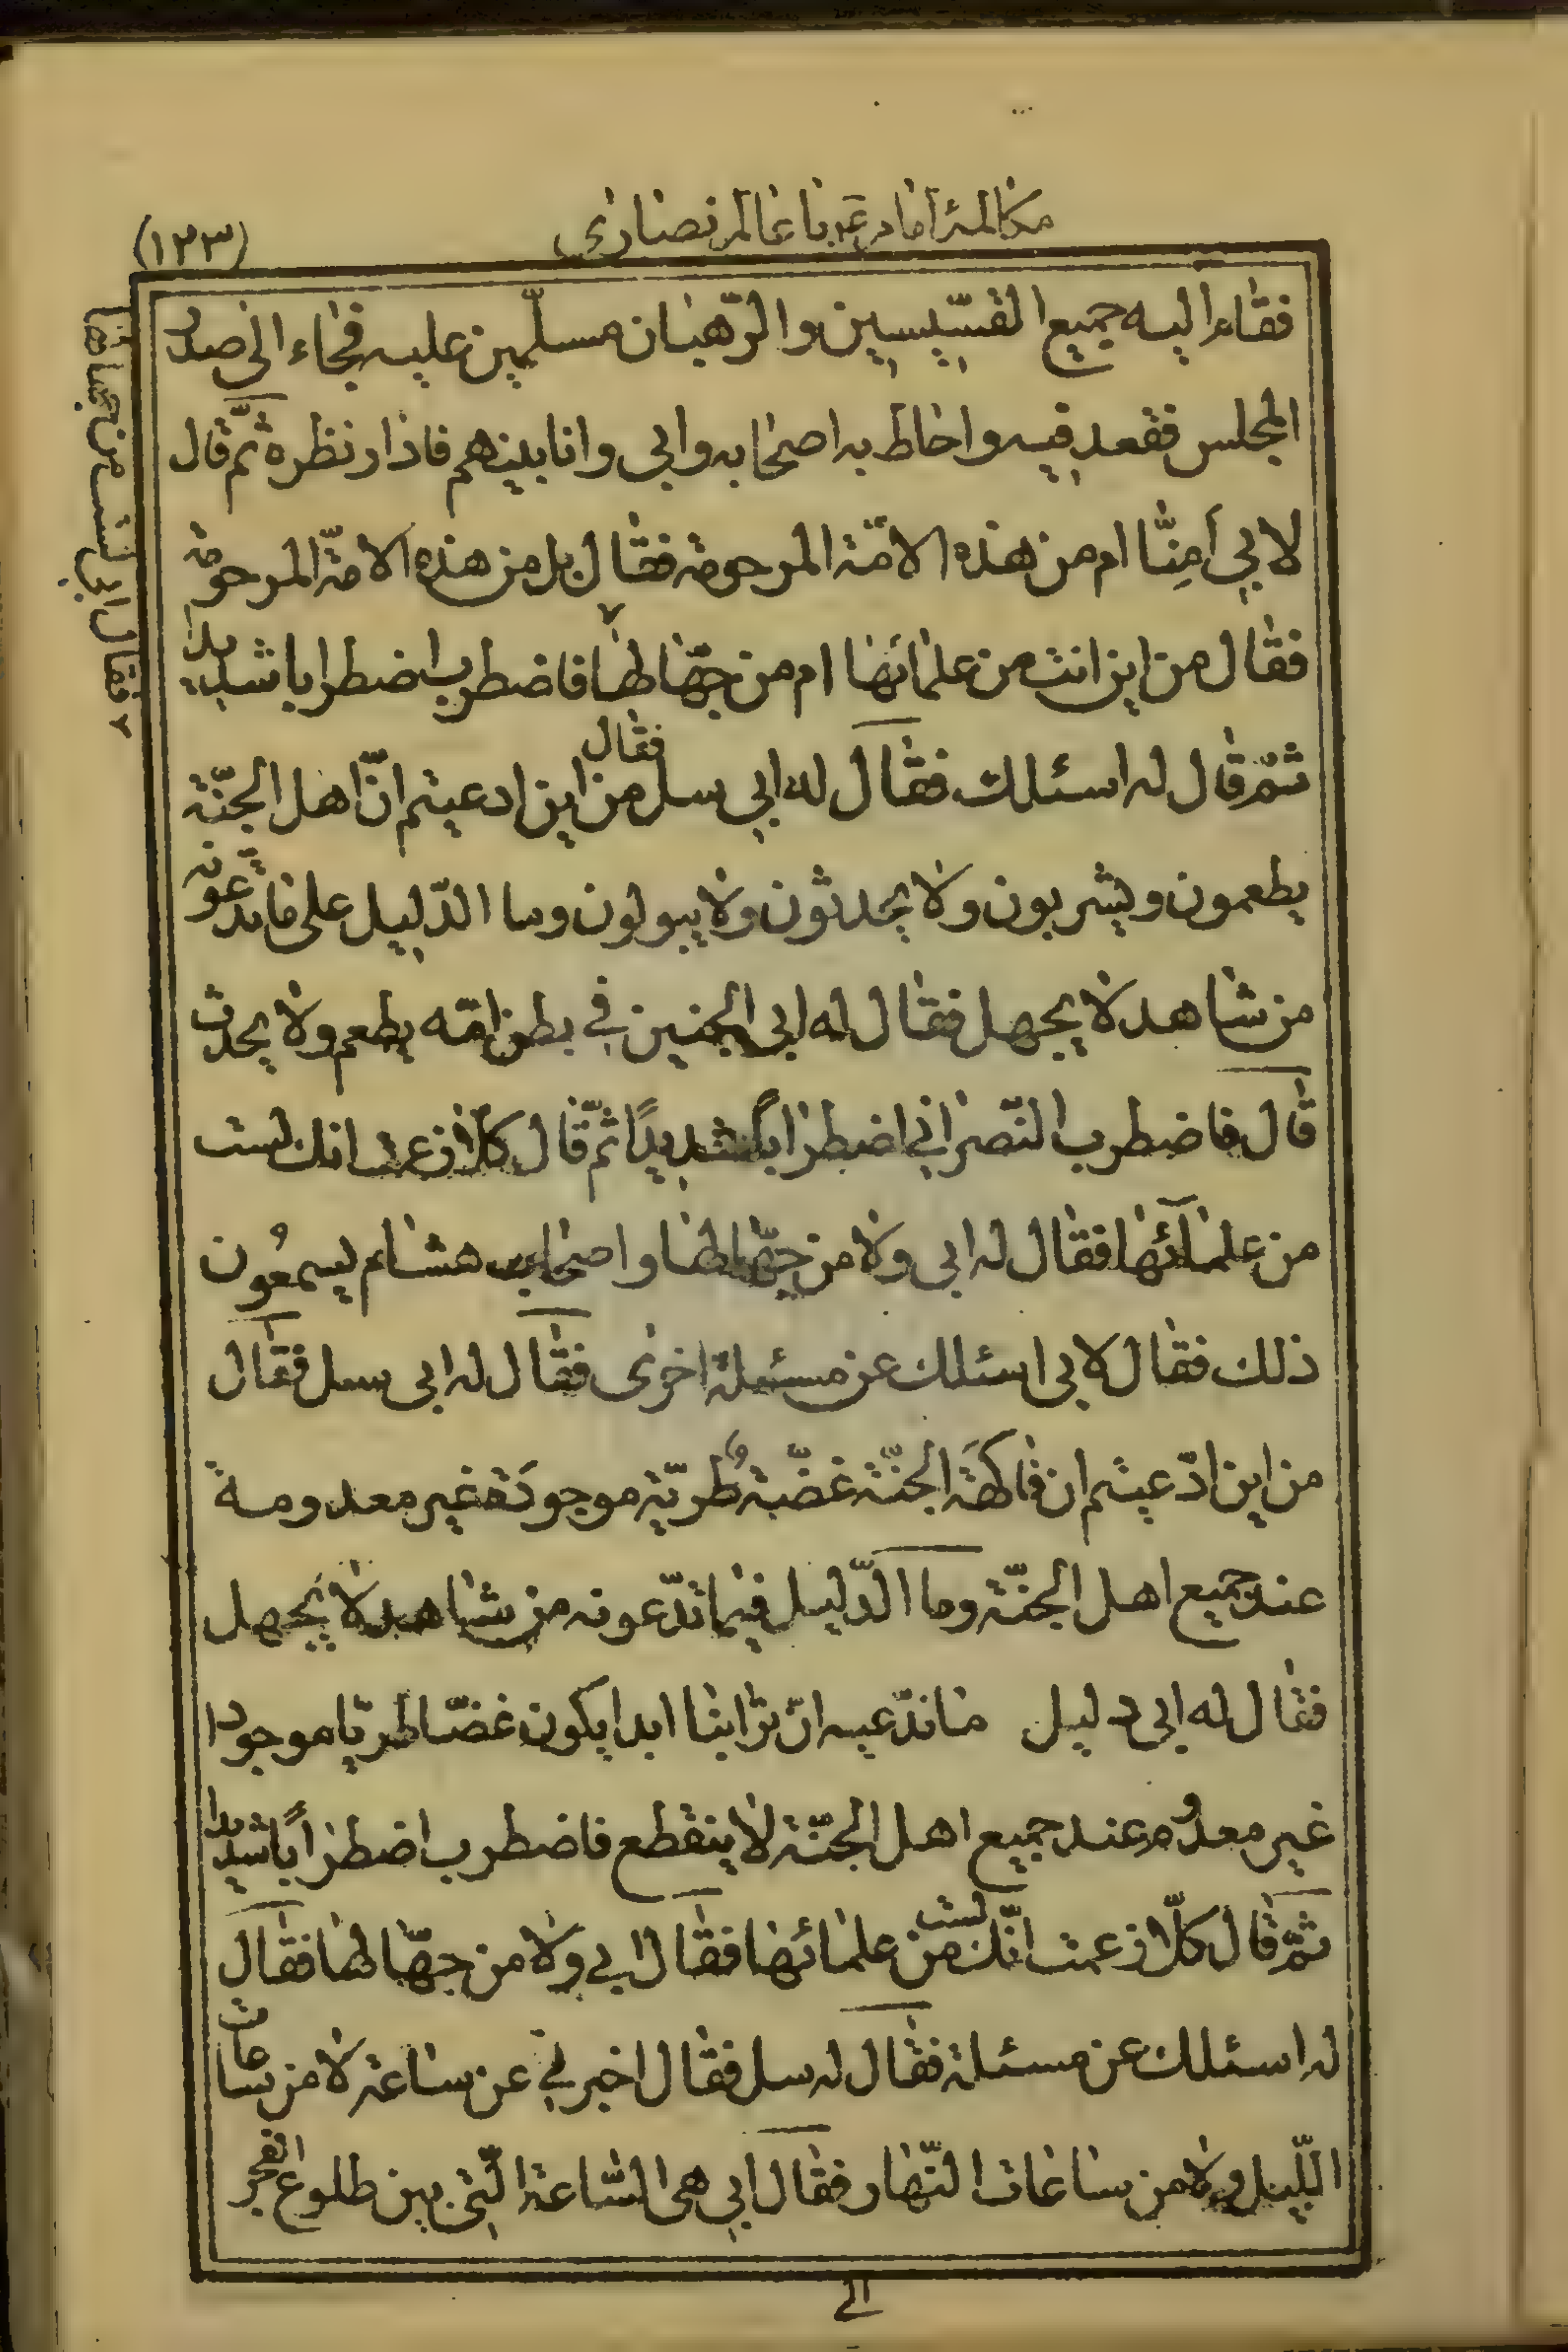 مكالمۀ امام ع با عالم نصارى
(١٢٣)
فقاء اليه جميع القسّيسين والرّهبان مسلّمين عليه فجاء الى صدر
المجلس فقعد فيه واحاط به اصحابه وابى وانا بينهم فادار نظره ثمّ قال
لابي أمِنّا ام من هذه الامّة المرحومة فقال بل من هذه الامّة المرحومة
فقال من اين انت من علمائها ام من جهّالها فاضطرب اضطرابا شديدا
ثمّ قال له اسئلك فقال له ابي سل فقال من اين ادعيتم انّ اهل الجنّة
يطعمون ويشربون ولا يحدثون ولا يبولون وما الدّليل على ما تدّعونه
من شاهد لا يجهل فقال له ابى الجنين في بطن امّه يطعم ولا يحدث
قال فاضطرب النّصرانى اضطراباً شديداً ثمّ قال كلا زعمت انك لست
من علمآئها فقال له ابى ولا من جهّالها واصحاب هشام يسمعُون
ذلك فقال لابى اسئلك عن مسئلة اخرى فقال له ابى سل فقال
من اين ادّعيتم ان فاكهة الجنّة غضّة طريّة موجودة غير معدومة
عند جميع اهل الجنّة وما الدّليل فيما تدّعونه من شاهد لا يجهل
فقال له ابى دليل ما ندّعيه انّ ترابنا ابدا يكون غضّا طريّا موجودا
غير معدوم عند جميع اهل الجنّة لا ينقطع فاضطرب اضطراباً شديدا
ثمّ قال كلّا زعمت انّك لست من علمائها فقال ابى ولا من جهّالها فقال
له اسئلك عن مسئلة فقال له سل فقال اخبرني عن ساعة لا من ساعات
اللّيل ولا من ساعات النّهار فقال ابي هى السّاعة الّتى بين طلوع الفجر
الى
٢ فقال ابى لست من جهالها